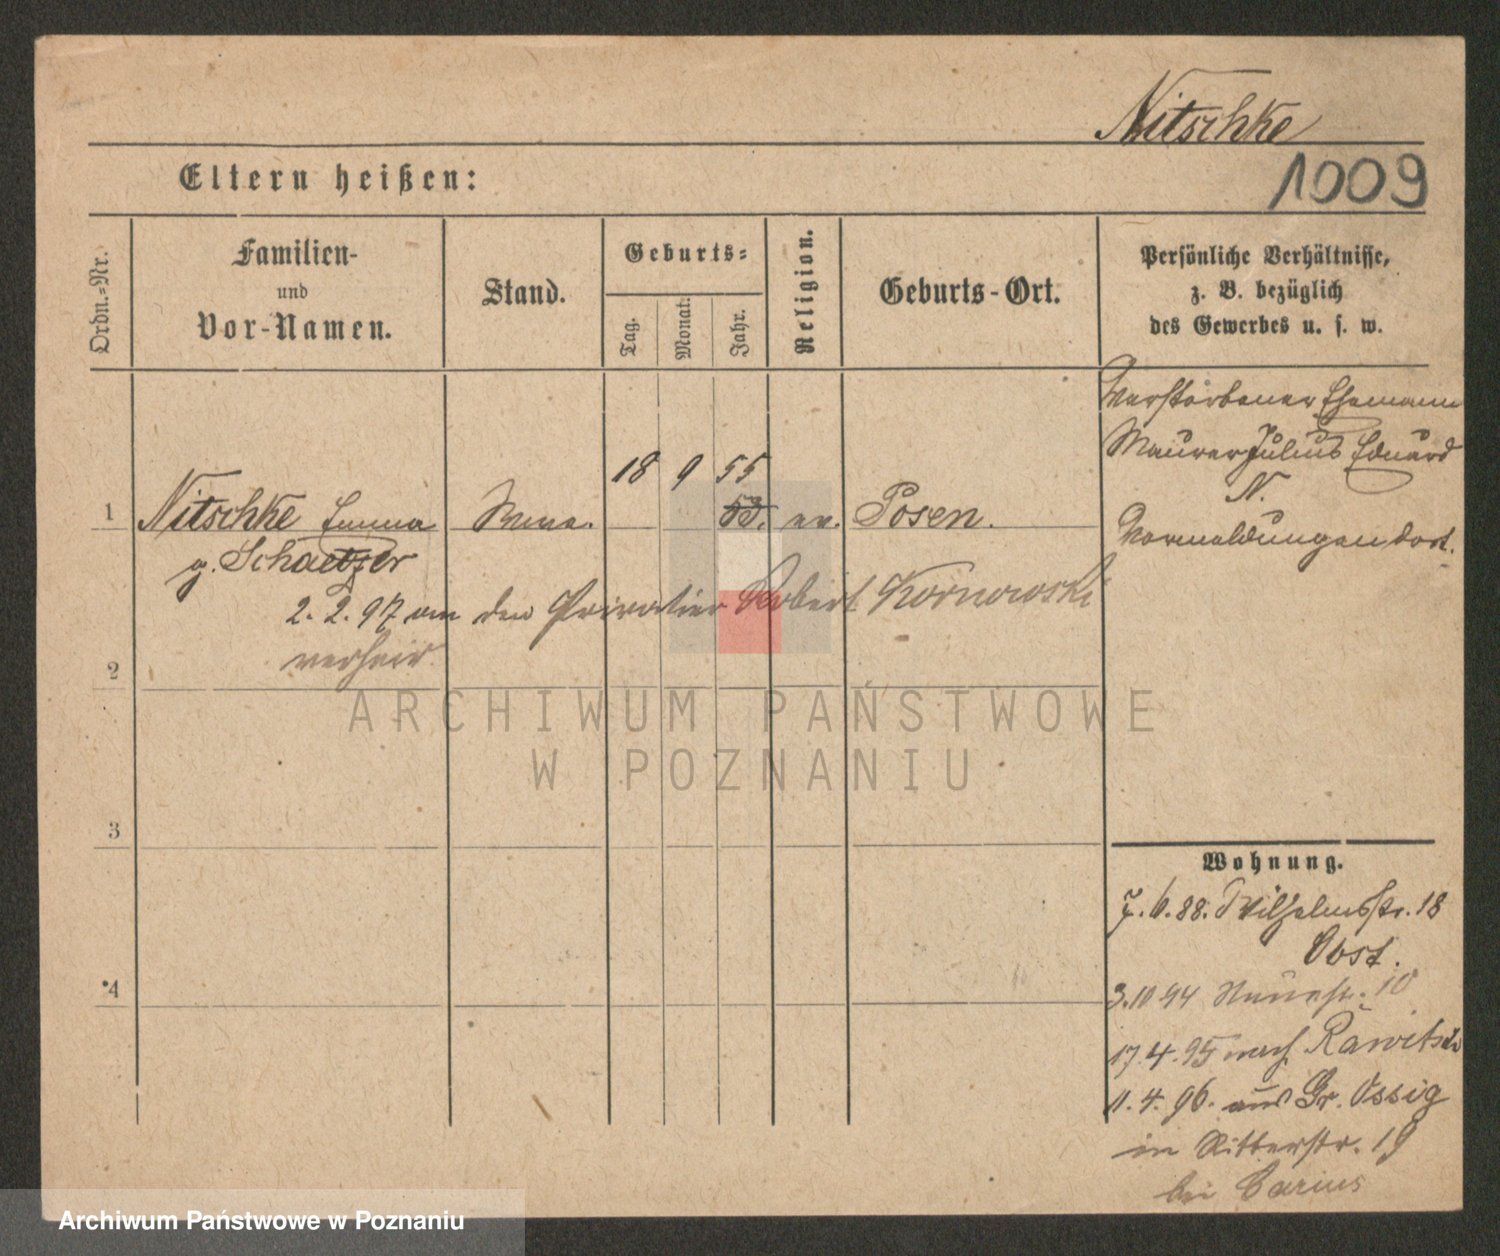 Nitschke
1009
Eltern heißen:
Ordn.=Nr.
Familien-
und
Vor-Namen.
Stand.
Geburts=
Tag.
Monat.
Jahr.
Religion.
Geburts-Ort.
Persönliche Verhältnisse,
z. B. bezüglich
des Gewerbes u. s. w.
Verstorbener Ehemann
Maurer Julius Eduard
N.
Vormeldungen dort.
18 9 55
1 Nitschke Emma Wwe. 53. ev. Posen.
g. Schaetzer
2. 2. 97 an den Privatier Robert Kornowski
verheir.
2
3
4
Wohnung.
7. 6. 88. Wilhelmstr. 18
Obst.
3. 10 94 Neuestr. 10
17. 4. 95 nach Rawitsch
11. 4. 96. aus Gr. Ossig
in Ritterstr. 19
bei Carius
ARCHIWUM PAŃSTWOWE
W POZNANIU
Archiwum Państwowe w Poznaniu